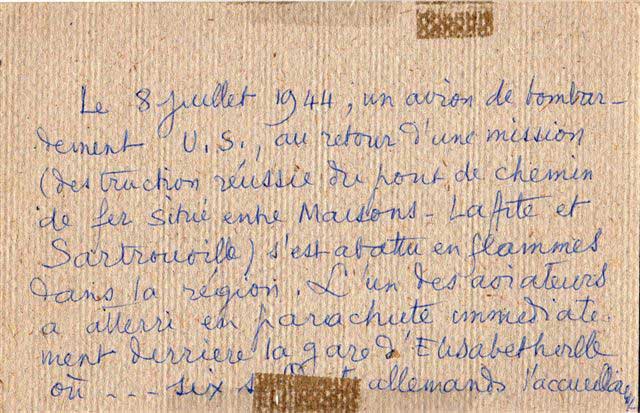 Le 8 juillet 1944, un avion de bombar-
dement U.S., au retour d'une mission
(destruction réussie du pont de chemin
de fer situé entre Maisons-Lafite et
Sartrouville) s'est abattu en flammes
dans la région. L'un des aviateurs
a atterri en parachute immédiate-
ment derrière la gare d'Elisabethville
où --- six allemands